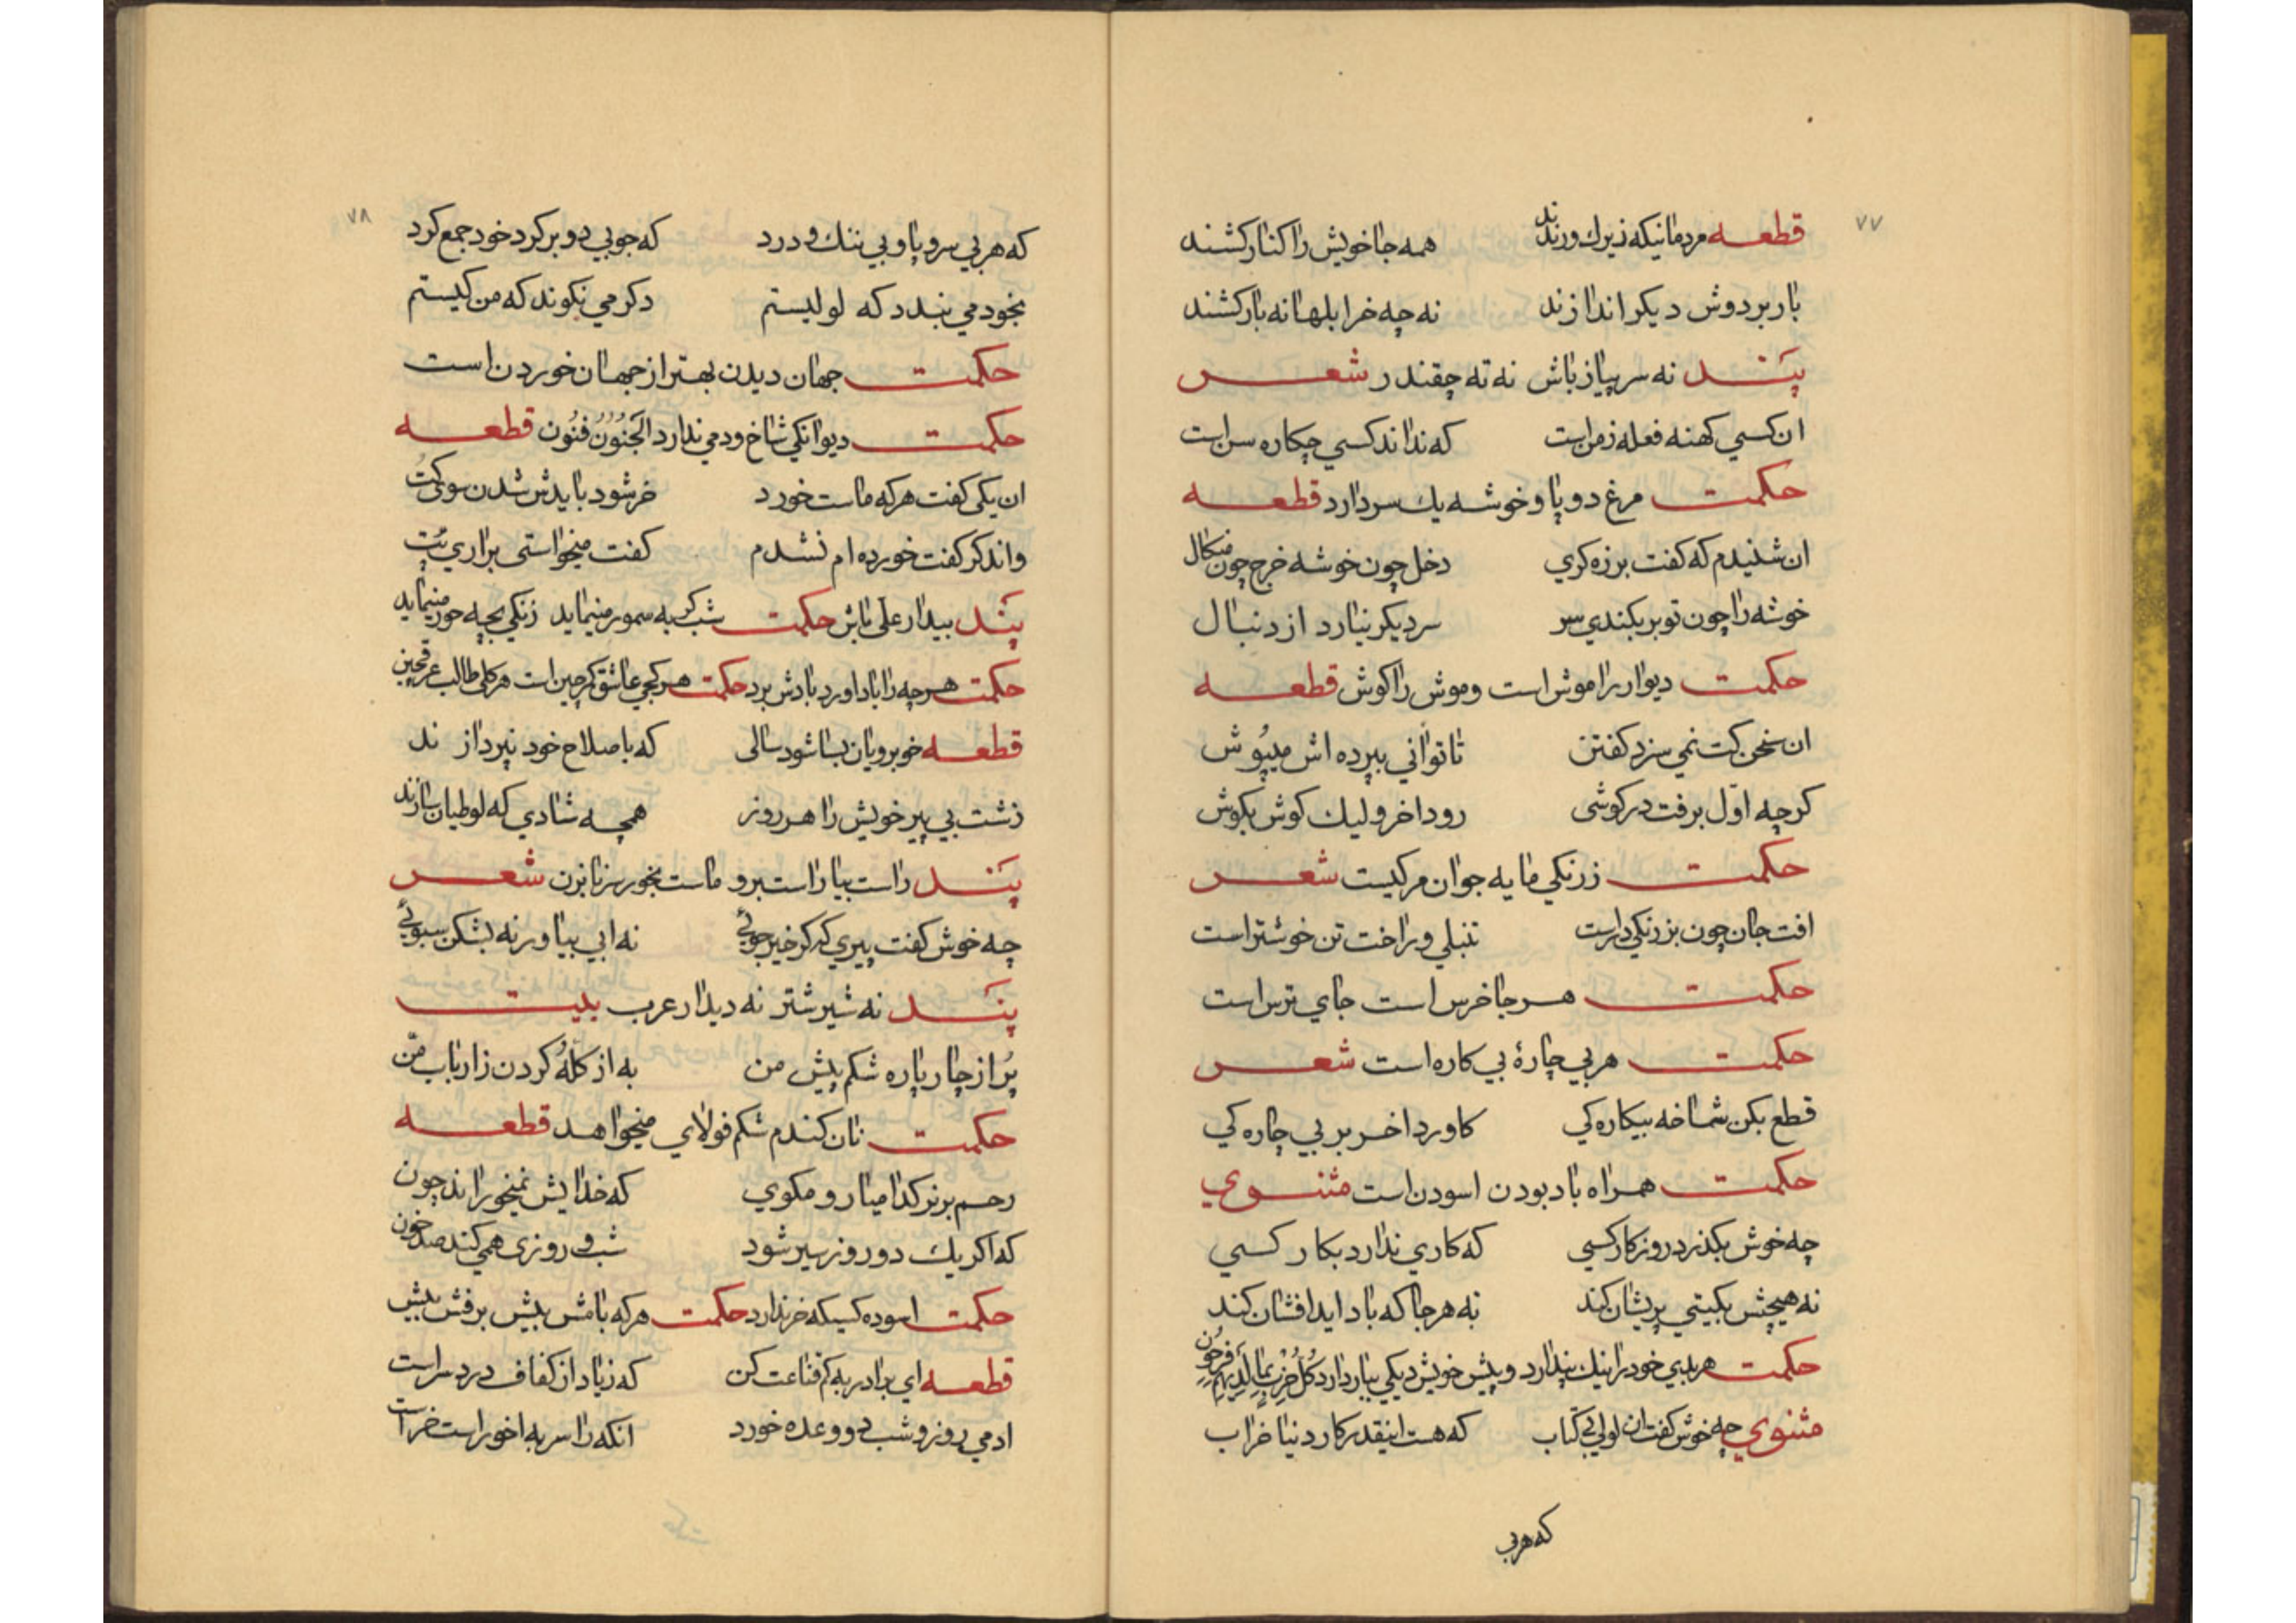 ۷۷
قطعه مردمانیکه زیرك و رندند همه جا خویش را کنار کشند
بار بر دوش دیکر اندازند نه چه خر ابلهانه بار کشند
پند نه سر پیاز باش نه ته چقندر شعر
ان کسی کهنه فعله زمن است که نداند کسی چکاره سن است
حکمت مرغ دو پا و خوشه یك سر دارد قطعه
ان شنیدم که کفت برزه کری دخل چون خوشه خرج چون
خوشه را چون تو بر بکندی سر سر دیکر نیارد از دنبال
حکمت دیوار را موش است و موش را کوش قطعه
ان سخن کت نمی سزد کفتن تا توانی بپرده اش میپوش
کرچه اوّل برفت در کوشی رود اخر ولیك کوش بکوش
حکمت زرنکی مایه جوان مرکیست شعر
افت جان چون بزرنکی در است تنبلی و راحت تن خوشتر است
حکمت هر جا خرس است جای ترس است
حکمت هر بی چارهٔ بی کاره است شعر
قطع بکن شاخه بیکاره کی کاورد اخر بر بی چاره کی
حکمت همراه باد بودن اسودن است مثنوی
چه خوش بکذرد روزکار کسی که کاری ندارد بکار کسی
نه هیچش بکیتی پریشان کند نه هر جا که باد اید افشان کند
حکمت هر بدی خود را نیك پندارد و پیش خویش دیکی ببار دارد کُلُّ حِزْبٍ بِمَا لَدَیْهِمْ فَرِحُون
مثنوی چه خوش کفت ان لولی بی کتاب که هست اینقدر کار دنیا خراب
که هر بی
۷۸
که هر بی سر و پا و بی ننك و درد که جوبی دو بر کرد خود جمع کرد
بخود می بندد که لولیستم دکر می نکوند که من کیستم
حکمت جهان دیدن بهتر از جهان خوردن است
حکمت دیوانکی شاخ و دمی ندارد الْجُنُوُنُ فنُون قطعه
ان یکی کفت هر که ماست خورد خر شود بایدش شدن سوی کُت
واندکر کفت خورده ام نشدم کفت میخواستی براری پُت
پند بیدار علی باش حکمت شب کربه سمور مینماید زنکی بچه حور مینماید
حکمت هر چه را باد اورد بادش برد حکمت هر کجی عاشق کرچین است هر کلی طالب عرقچین
قطعه خوبرویان بسا شود سالی که باصلاح خود نپردازند
زشت بی پیر خویش را هر روز همچه شادی که لوطیان سازند
پند راست بیا راست برو ماست بخور سرنا بزن شعر
چه خوش کفت پیری که کر خیر جوئی نه ابی بیاور نه بشکن سبوئی
پند نه شیر شتر نه دیدار عرب بیت
پُر از چار پاره شکم پیش من به از کلّه کردن ز ارباب من
حکمت نان کندم شکم فولادی میخواهد قطعه
رحم بر نرکدا میار و مکوی که خدایش نمیخوراند چون
که اکر یك دو روز سیر شود شب و روزی همی کند صد خون
حکمت اسوده کسیکه خر ندارد حکمت هر که بامش بیش برفش بیش
قطعه ای برادر به کم قناعت کن که زیاد از کفاف درد سر است
ادمی روز و شب دو وعده خورد انکه را سر به اخور است خر است